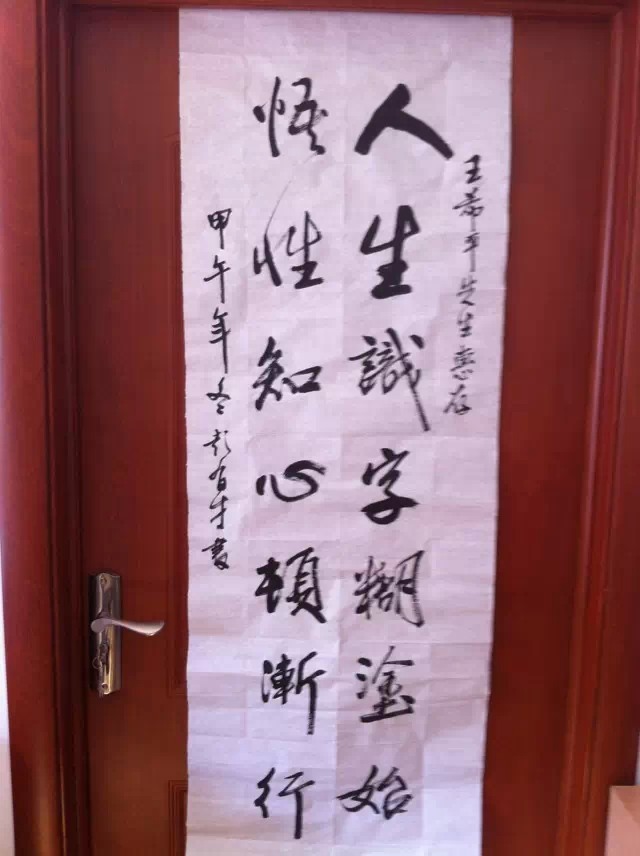 王希平先生惠存
人生識字糊塗始
悟性知心頓漸行
甲午年冬彭百才書